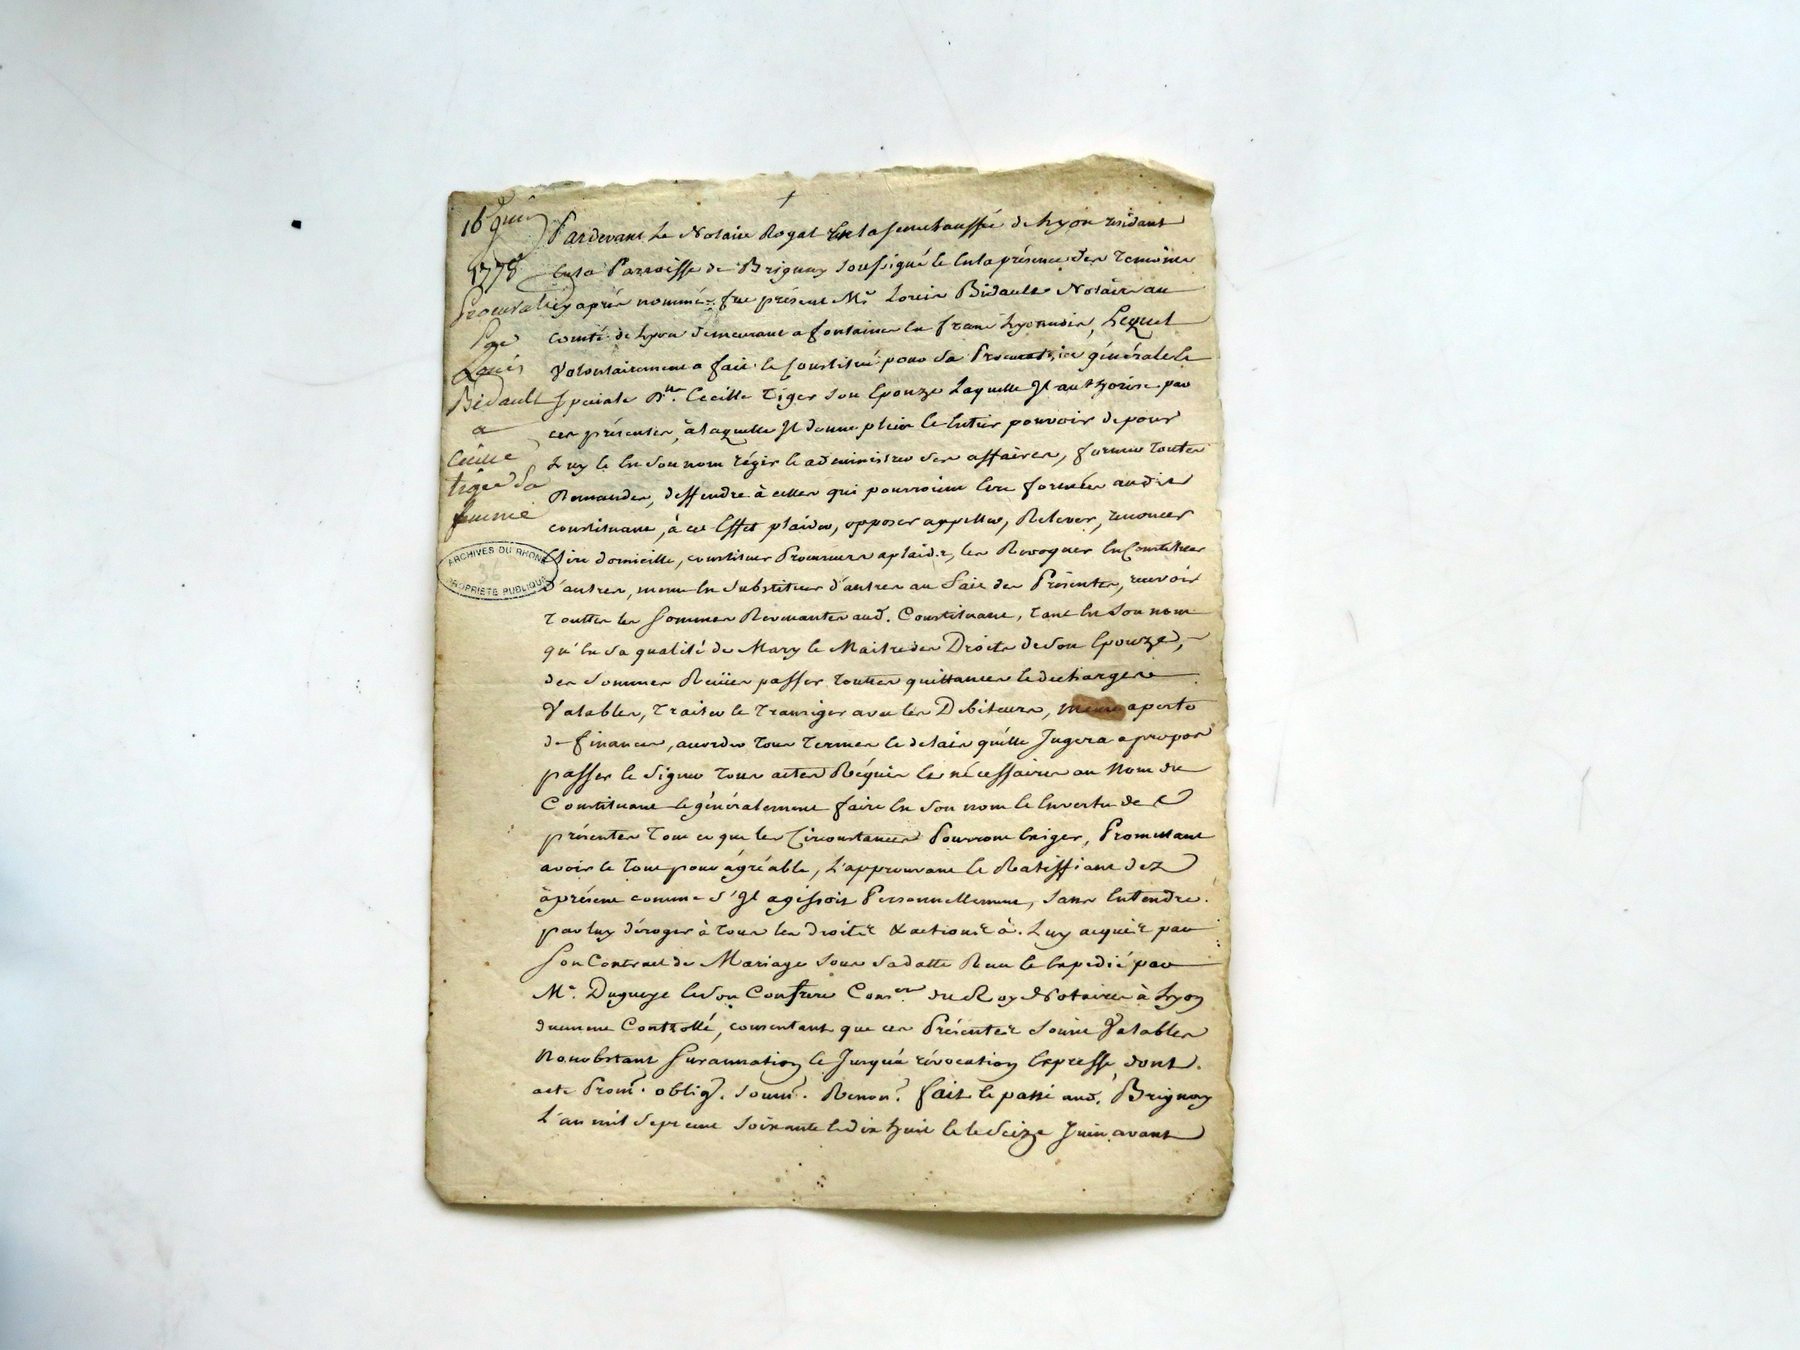 16 juin
1778
Procuration
par
Louis
Bidault
a
Cécille
tiger sa
femme
ARCHIVES DU RHONE
PROPRIÉTÉ PUBLIQUE
Pardevant Le Notaire Royal En la senechaussée de Lyon residant
En la Parroisse de Brignay soussigné et En la présence des Temoins
cy après nommés fut présent Me. Louis Bidault Notaire au
comté de Lyon demeurant a fontaines en franc Lyonnois, Lequel
Volontairement a fait et Constitué pour sa Procuratrice générale et
speciale Dlle. Cecille Tiger son Epouze Laquelle Il authorise par
ces présentes, à laquelle Il donne plein et Entier pouvoir de pour
Luy et En son nom régir et administrer ses affaires, former toutes
Demandes, deffendre à celles qui pourroient Etre formées audit
constituant, à cet Effet plaider, opposer appeller, Relever, renoncer
Elire domicille, constituer Procureurs a plaids, les Revoquer En Constituer
d'autres, meme En substituer d'autres au fait des Présentes, recevoir
Touttes les sommes Revenantes aud. Constituant, tant En son nom
qu'En sa qualité de Mary et Maitre des Droits de son Epouze,
des sommes Reçües passer touttes quittances et decharges
Valables, Traiter et Transiger avec les Debiteurs, meme a perte
de finances, accorder tous termes et delais qu'elle Jugera a propos
passer et signer tous actes Réquis et nécessaires au Nom du
Constituant et généralement faire En son nom et En vertu de ces
présentes tout ce que les Circonstances Pourront Exiger, Promettant
avoir le tout pour agréable, L'approuvant et Ratiffiant dez
àprésent comme s'Il agissoit Personnellement, sans Entendre
par luy déroger à tous les droits & actions à Luy acquis par
son Contract de Mariage sous sa datte Reçu et Expedié par
Me. Dugueyt et son Confrere Coners. du Roy Notaires à Lyon
duement Controllé, consentant que ces Présentes soient Valables
Nonobstant surannation et Jusqu'à révocation Expresse, dont
acte Prom. oblig. soum. Renon. fait et passé aud. Brignay
L'an mil sept cent soixante et dix huit et le seize Juin avant